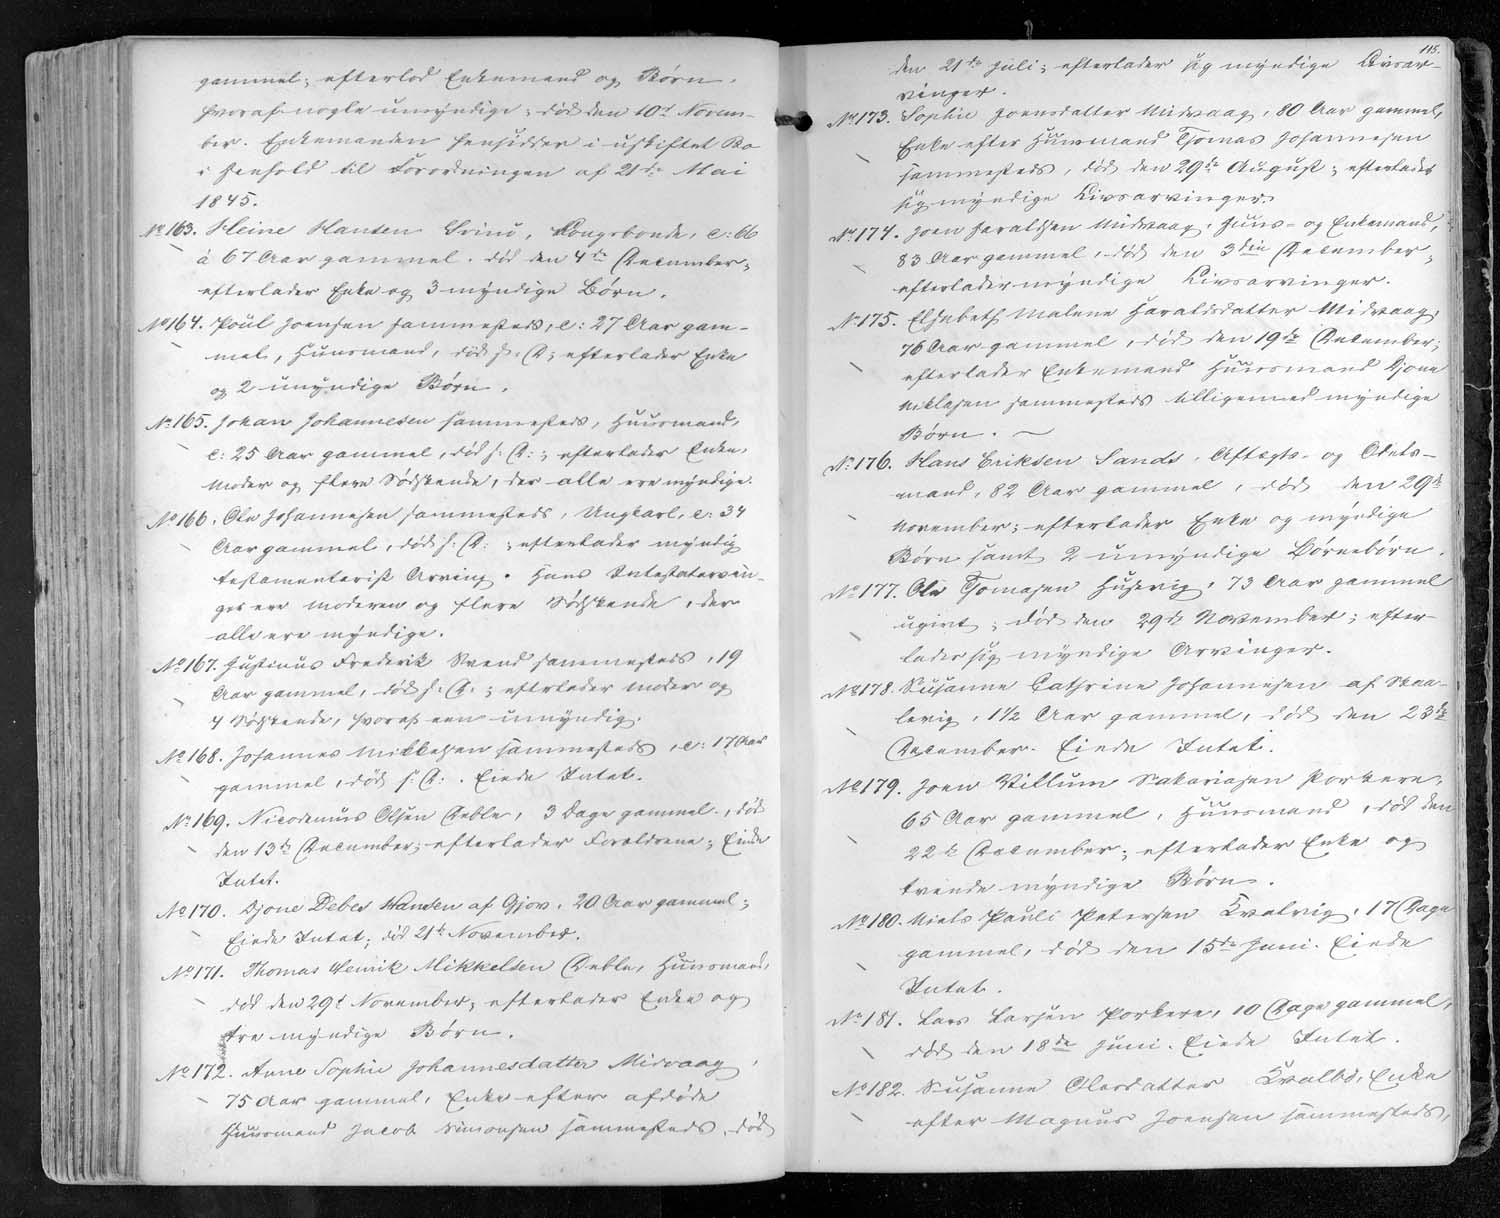 gammel; efterlod Enkemand og Børn,
hvoraf nogle umyndige; død den 10d Novem-
ber. Enkemanden hensidder i uskiftet Bo
i Henhold til Forordningen af 21de Mai
1845.
No 163. Heine Hansen Svinø, Kongsbonde, c: 66
à 67 Aar gammel. død den 4de December;
efterlader Enke og 3 myndige Børn.
No 164. Poul Joensen sammesteds, c: 27 Aar gam-
mel, Huusmand, død s: D; efterlader Enke
og 2 umyndige Børn.
No 165. Johan Johannesen sammesteds, Huusmand,
c: 25 Aar gammel, død s: D: ; efterlader Enke,
Moder og flere Sødskende, der alle ere myndige.
No 166. Ole Johannesen sammesteds, Ungkarl, c: 34
Aar gammel, død s: D: ; efterlader myndig
testamentarisk Arving. Hans Intestatarvin-
ger ere Moderen og flere Sødskende, der
alle ere myndige.
No 167. Justinus Frederik Svend sammesteds, 19
Aar gammel, død s: D: ; efterlader Moder og
4 Sødskende, hvoraf een umyndig.
No 168. Johannes Mikkelsen sammesteds, c: 17 Aar
gammel, død s: D: . Eiede Intet.
No 169. Nicodemus Olsen Deble, 3 Dage gammel, død
den 13de December; efterlader Forældrene; Eiede
Intet.
No 170. Djone Debes Hansen af Gjov, 20 Aar gammel;
Eiede Intet; død 21de November.
No 171. Thomas Henrik Mikkelsen Deble, Huusmand,
død den 29d November; efterlader Enke og
tre myndige Børn.
No 172. Anne Sophie Johannesdatter Midvaag,
75 Aar gammel, Enke efter afdøde
Huusmand Jacob Simonsen sammesteds, død
115.
den 21de Juli; efterlader sig myndige Livsar-
vinger.
No 173. Sophie Joensdatter Midvaag, 80 Aar gammel,
Enke efter Huusmand Thomas Johannesen
sammesteds, død den 29de August; efterlader
sig myndige Livsarvinger.
No 174. Joen Haraldsen Midvaag, Huus- og Enkemand,
83 Aar gammel, død den 3die December;
efterlader myndige Livsarvinger.
No 175. Elsebeth Malene Haraldsdatter Midvaag,
76 Aar gammel, død den 19de December;
efterlader Enkemand Huusmand Djone
Niklasen sammesteds tilligemed myndige
Børn.
No 176. Hans Eriksen Sands, Aftægts- og Odels-
mand, 82 Aar gammel, død den 29de
November; efterlader Enke og myndige
Børn samt 2 umyndige Børnebørn.
No 177. Ole Thomasen Husevig, 73 Aar gammel
ugivt; død den 29de November; efter-
lader sig myndige Arvinger.
No 178. Susanne Cathrine Johannesen af Skaa-
levig, 1 1/2 Aar gammel, død den 23de
December. Eiede Intet.
No 179. Joen Villum Sakariasen Porkere,
65 Aar gammel, Huusmand, død den
22de December; efterlader Enke og
trende myndige Børn.
No 180. Niels Pauli Petersen Kvalvig, 17 Dage
gammel, død den 15de Juni. Eiede
Intet.
No 181. Lars Larsen Porkere, 10 Dage gammel,
død den 18de Juni. Eiede Intet.
No 182. Susanne Olesdatter Kvalbø, Enke
efter Magnus Joensen sammesteds,